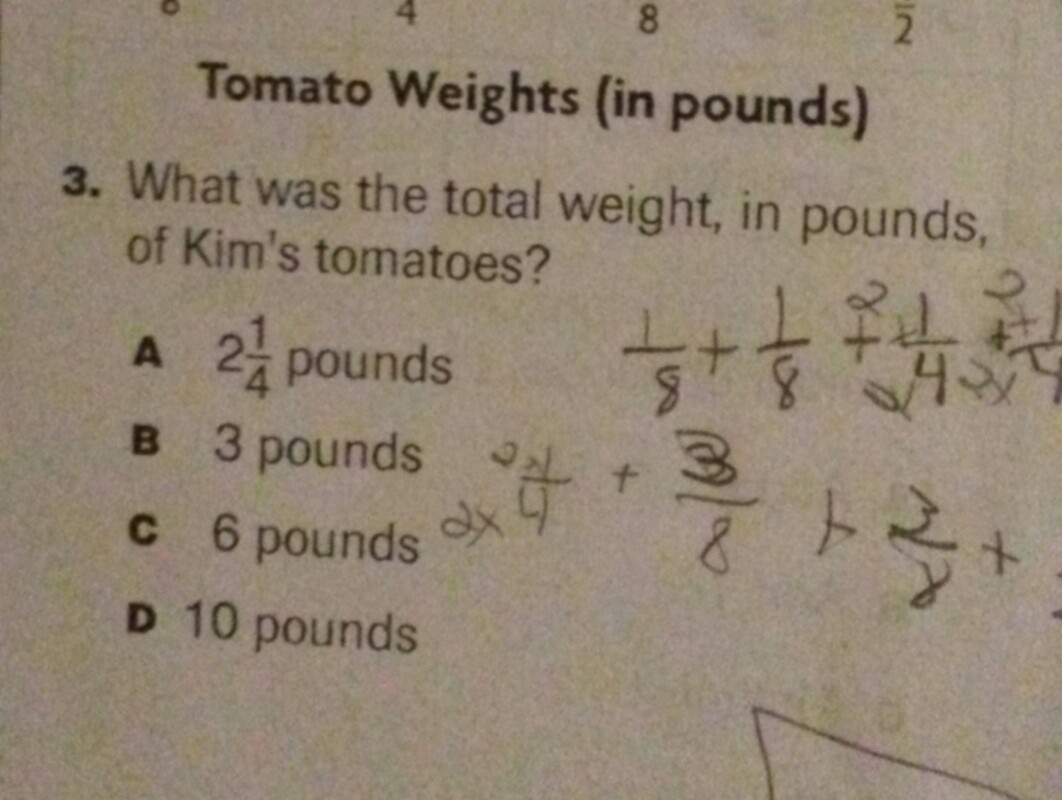 8 4 8 2
Tomato Weights (in pounds)
3. What was the total weight, in pounds,
of Kim's tomatoes?
A 2 1/4 pounds
B 3 pounds
C 6 pounds
D 10 pounds
1/8 + 1/8 + 2×1/2×4 + 2×1/2×4
2×1/2×4 + 3/8 + 3/8 +